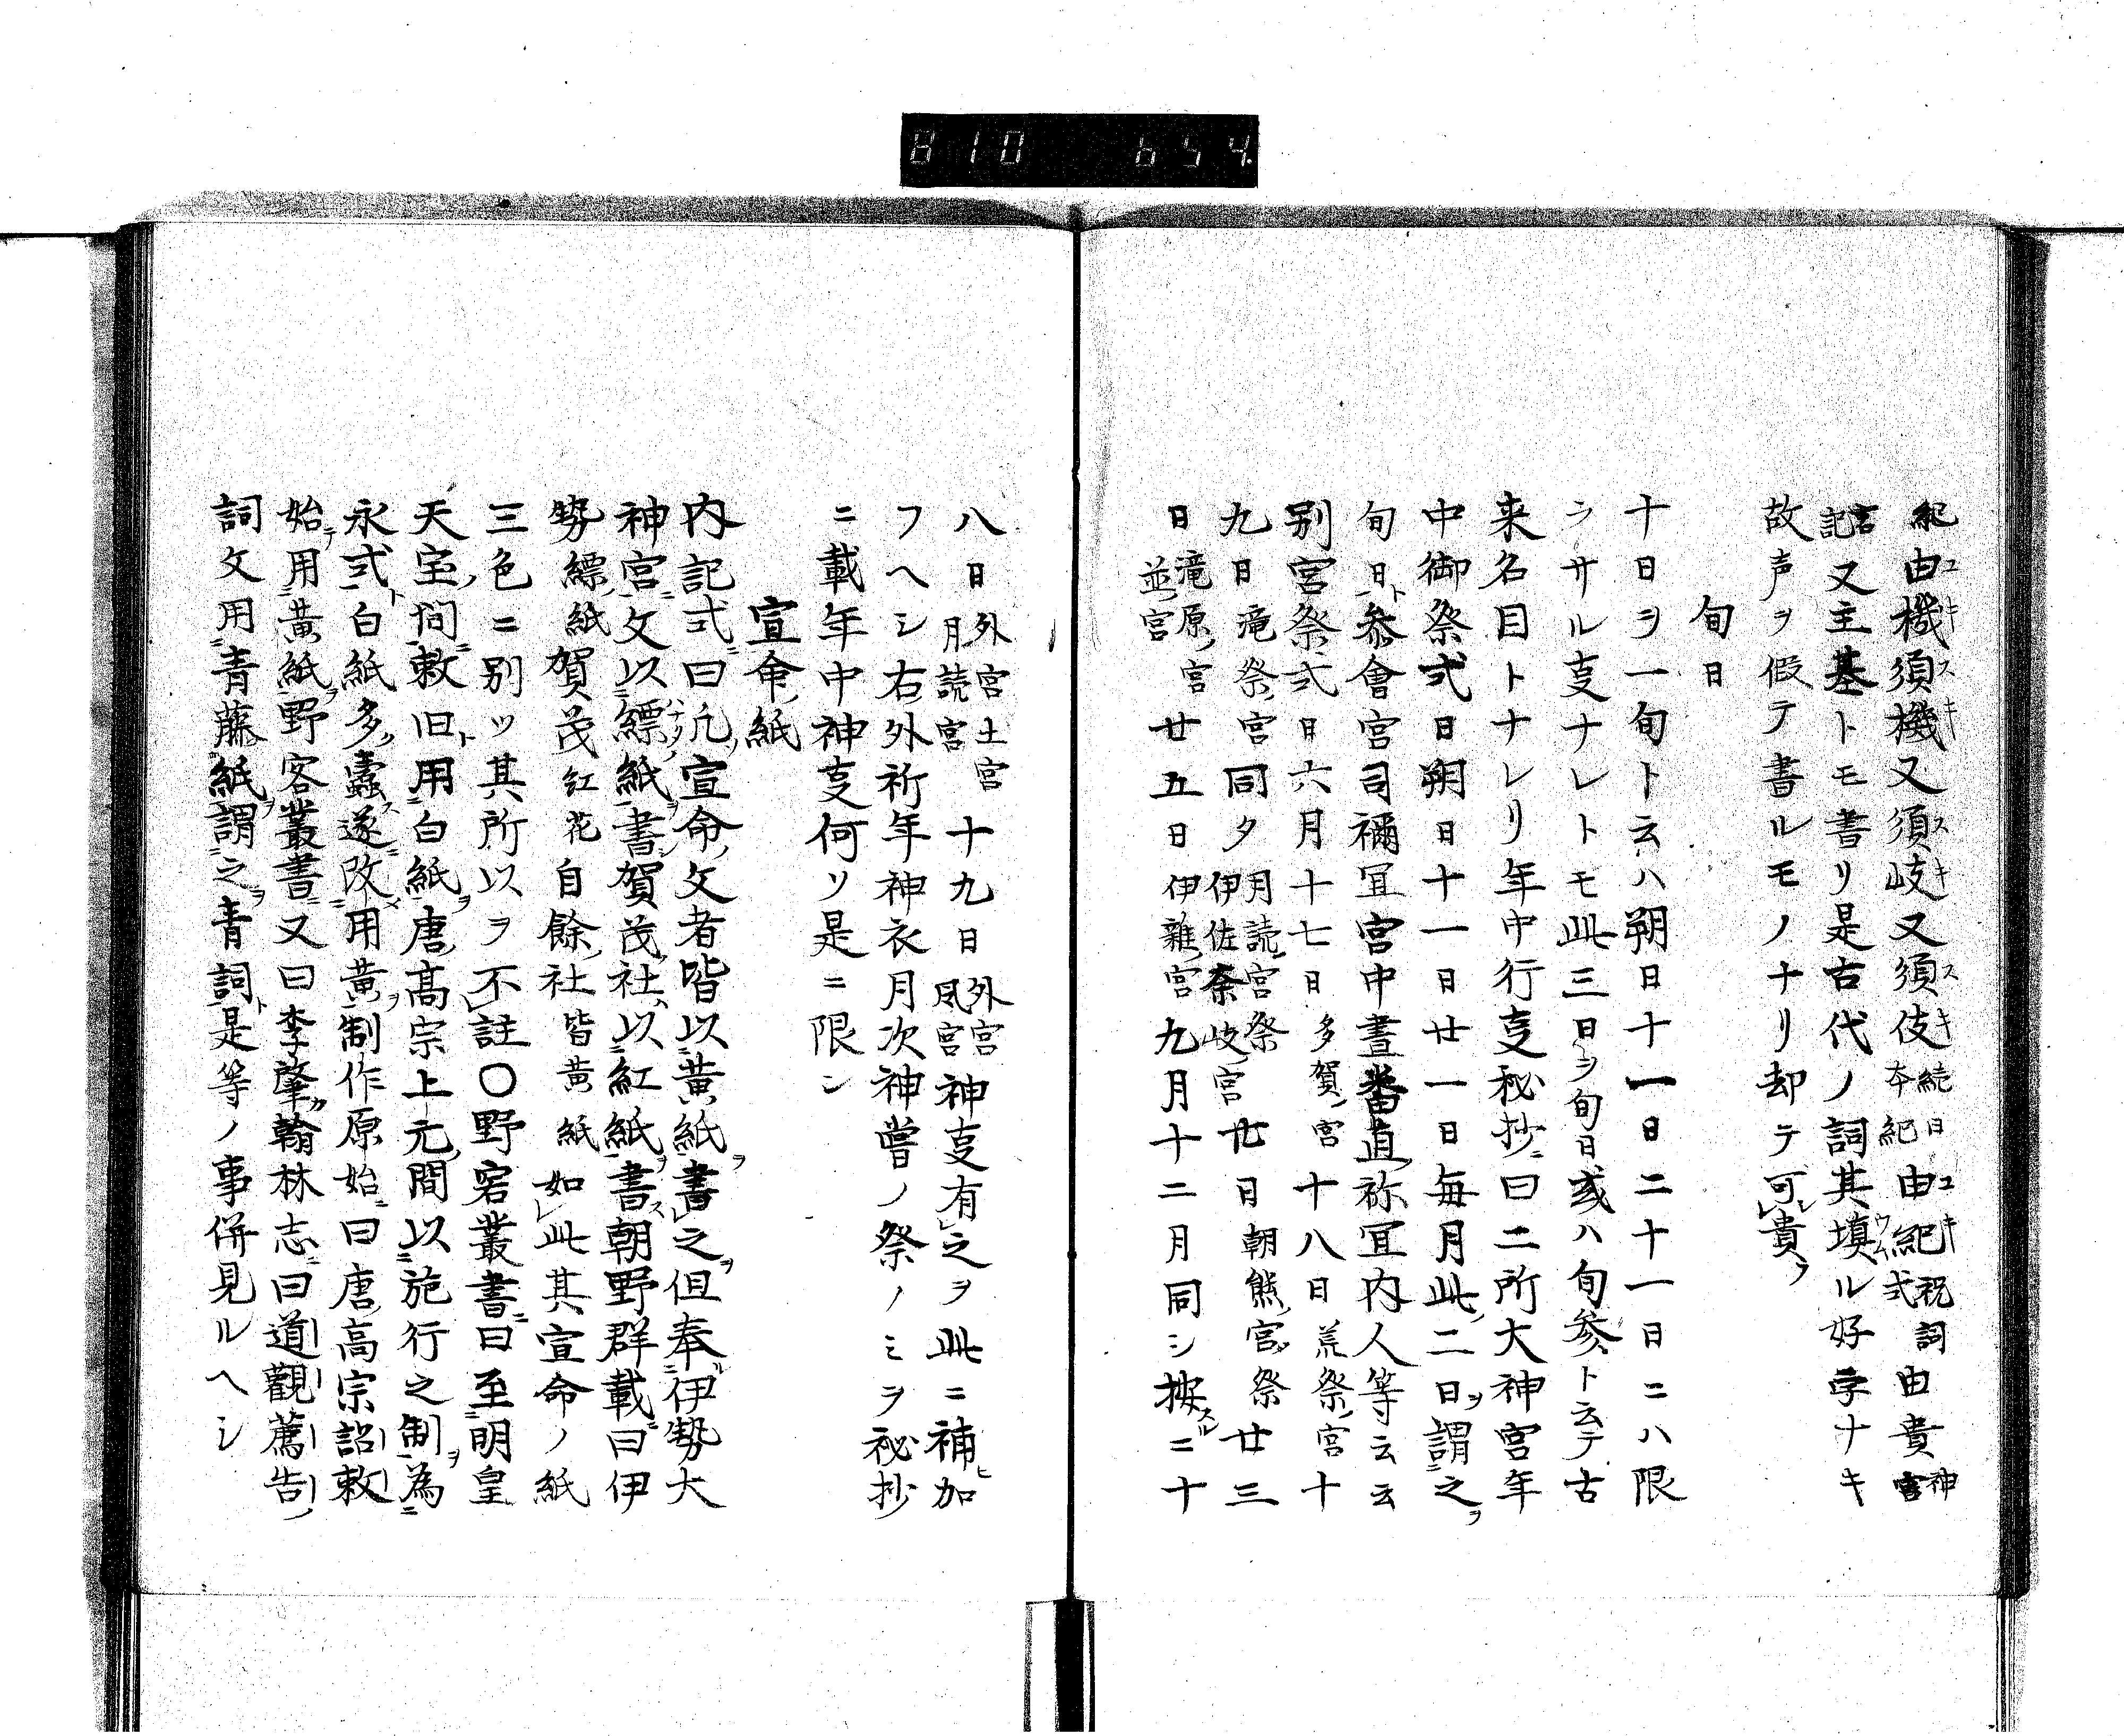 810 654.
紀由機須機又須岐又須伎続日本紀由紀祝詞式由貴神宮
記言又主基トモ書リ是古代ノ詞其填ル好字ナキ
故声ヲ假テ書ルモノナリ却テ可貴ヲ
旬日
十日ヲ一旬ト云ハ朔日十一日二十一日ニハ限
ラサル叓ナレトモ此三日ヲ旬日或ハ旬参ト云テ古
来名目トナレリ年中行叓秘抄ニ曰二所大神宮年
中御祭式日朔日十一日廿一日毎月此二日ヲ謂之ヲ
旬日ト参會宮司禰冝宮中晝番直祢冝内人等云云
别宮祭式日六月十七日多賀ノ宮十八日荒祭ノ宮十
九日滝祭ノ宮同夕月読宮祭伊佐奈岐ノ宮廿日朝熊ノ宮祭廿三
日滝原ノ宮並ノ宮廿五日伊雑ノ宮九月十二月同シ按スルニ十
八日外宮土宮月読宮十九日外宮風宮神叓有之ヲ此ニ補ヒ加
フヘシ右外祈年神衣月次神嘗ノ祭ノミヲ秘抄
ニ載年中神叓何ソ是ニ限ン
宣命ノ紙
内記式ニ曰凡ソ宣命ノ文者皆以黄紙ヲ書之ヲ但奉ル伊勢大
神宮ニ文以縹ハナタノ紙ヲ書賀茂ノ社ハ以紅紙ヲ書ス朝野群載ニ曰伊
勢縹ノ紙賀茂紅花自餘ノ社皆黄紙如此其宣命ノ紙
三色ニ別ツ其所以ヲ不註〇野客叢書ニ曰至明皇
天宝ノ間ニ敕旧ト用白紙ヲ唐ノ高宗上元ノ間以施行之制ヲ為
永式ト白紙多ク蠹ス遂ニ改メ用黄ヲ制作原始ニ曰唐ノ高宗詔敕
始テ用黄紙ヲ野客叢書ニ又曰李肇カ翰林志ニ曰道觀薦告ノ
詞文用青藤ノ紙ヲ謂之ヲ青詞ト是等ノ事併見ルヘシ